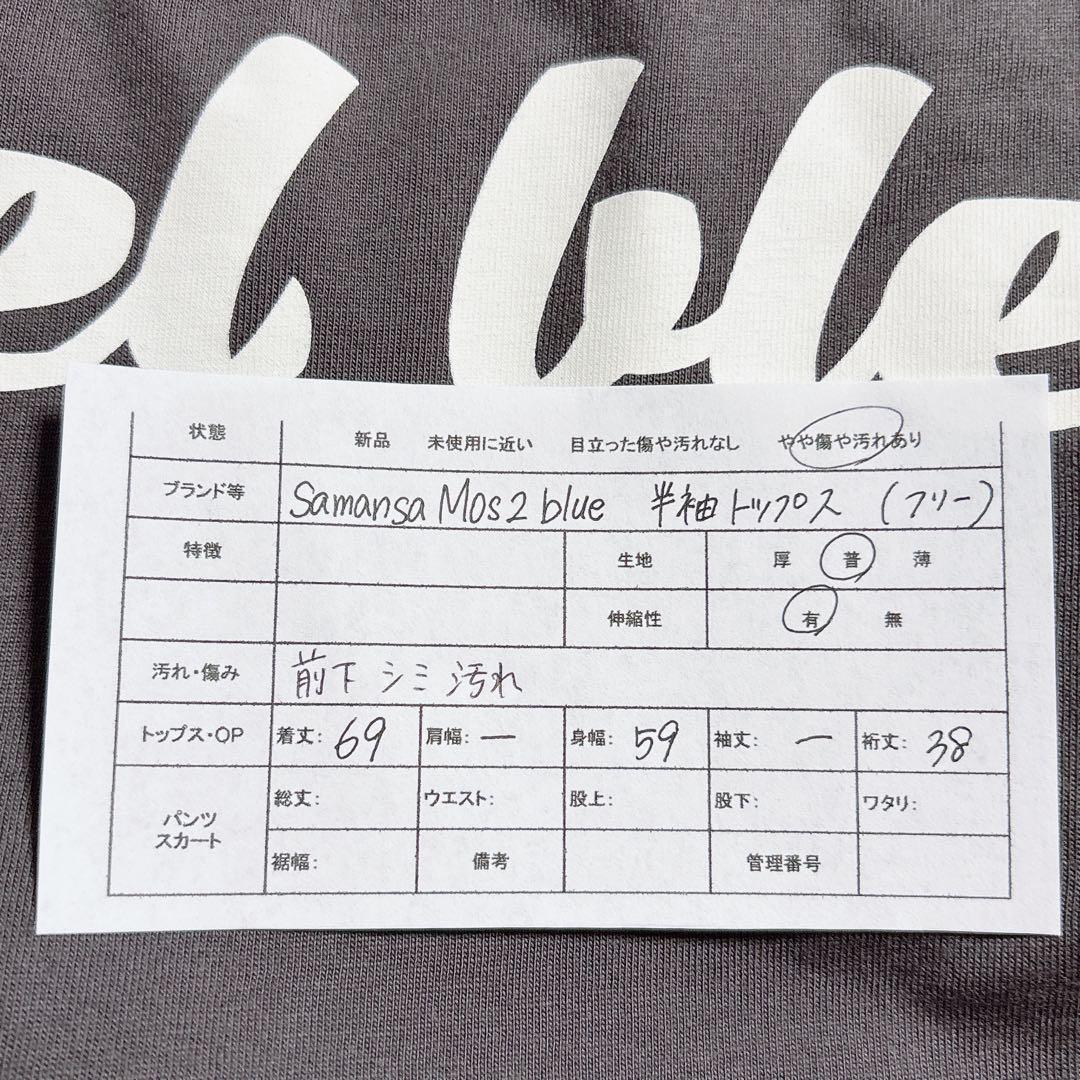 el ble
状態 新品 未使用に近い 目立った傷や汚れなし やや傷や汚れあり
ブランド等 Samansa Mos2 blue 半袖トップス (フリー)
特徴 生地 厚 普 薄
伸縮性 有 無
汚れ・傷み 前下 シミ 汚れ
トップス・OP 着丈: 69 肩幅: — 身幅: 59 袖丈: — 裄丈: 38
パンツ スカート 総丈: ウエスト: 股上: 股下: ワタリ:
裾幅: 備考 管理番号